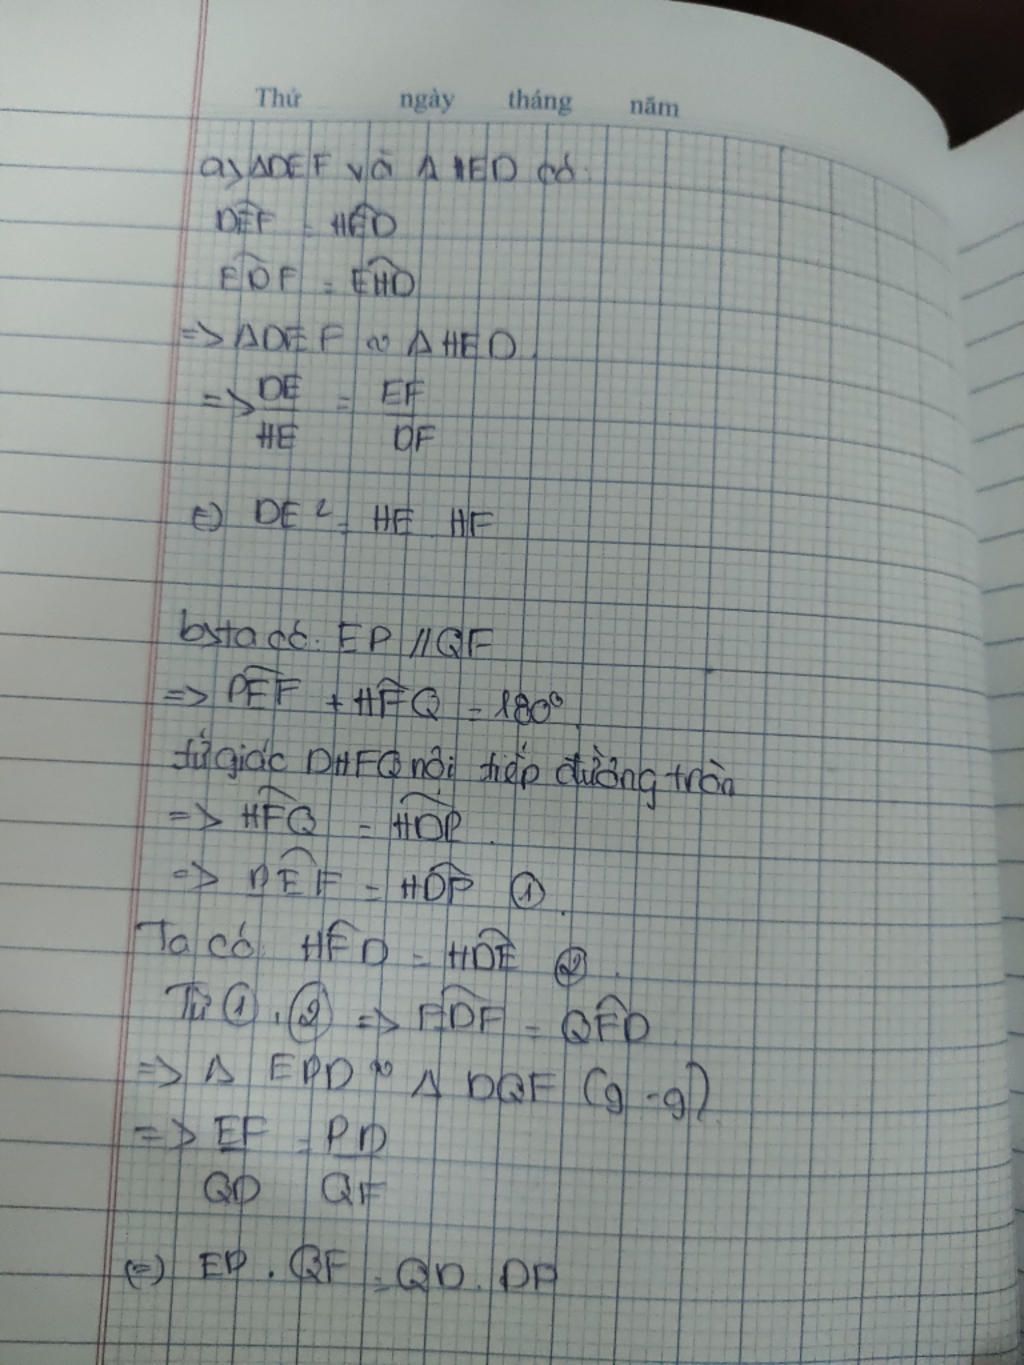 Thứ ngày tháng năm
a) ΔDEF và ΔHED có:
DEF = HED
EDF = EHD
=> ΔDEF ∽ ΔHED
=> DE/HE = EF/DF
<=> DE² = HE . HF
b) ta có: EP // QF
=> PEF + HFQ = 180°
tứ giác DHFQ nội tiếp đường tròn
=> HFQ = HDP.
=> PEF = HDP ①.
Ta có HFD = HDE ②.
Từ ①, ② => PDF = QFD
=> Δ EPD ∽ Δ DQF (g-g)
=> EF/QD = PD/QF
(=) EP . QF = QD . DP